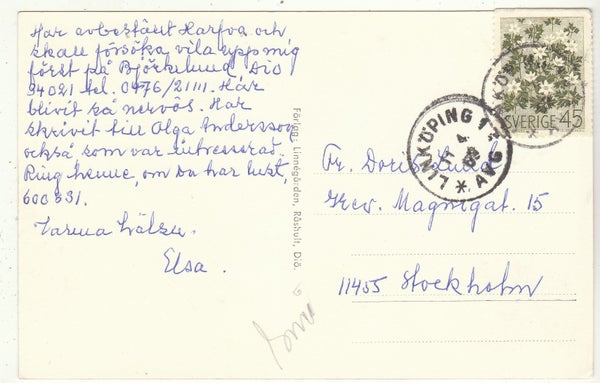 Har avbeställt Harfva och
skall försöka vila upp mig
först på Björkelund, Diö
34021 tel. 0476/2111. Har
blivit så nervös. Har
skrivit till Olga Andersson
också som var intresserad.
Ring henne, om Du har lust,
600831.
Varma hälsn.
Elsa.
Förlag: Linnégården, Råshult, Diö.
SVERIGE 45
LINKÖPING 1
AVG
Fr. Doris Lund
Grev. Magnigat. 15
11455 Stockholm